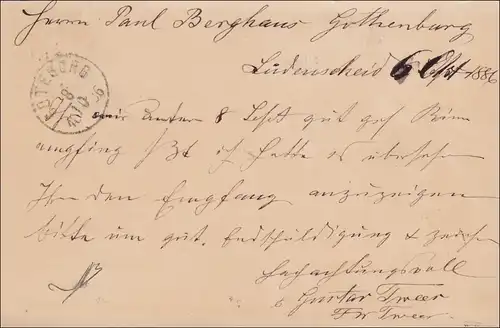 Herrn Paul Berghaus Gothenburg
Lüdenscheid 6 Oct 1886
GÖTEBORG
8 10
unter 8 Sept gut
empfing ich hatte es übersehen
Ihnen den Empfang anzuzeigen
bitte um gut. Entschuldigung &
hochachtungsvoll
Gustav Tweer
Tweer